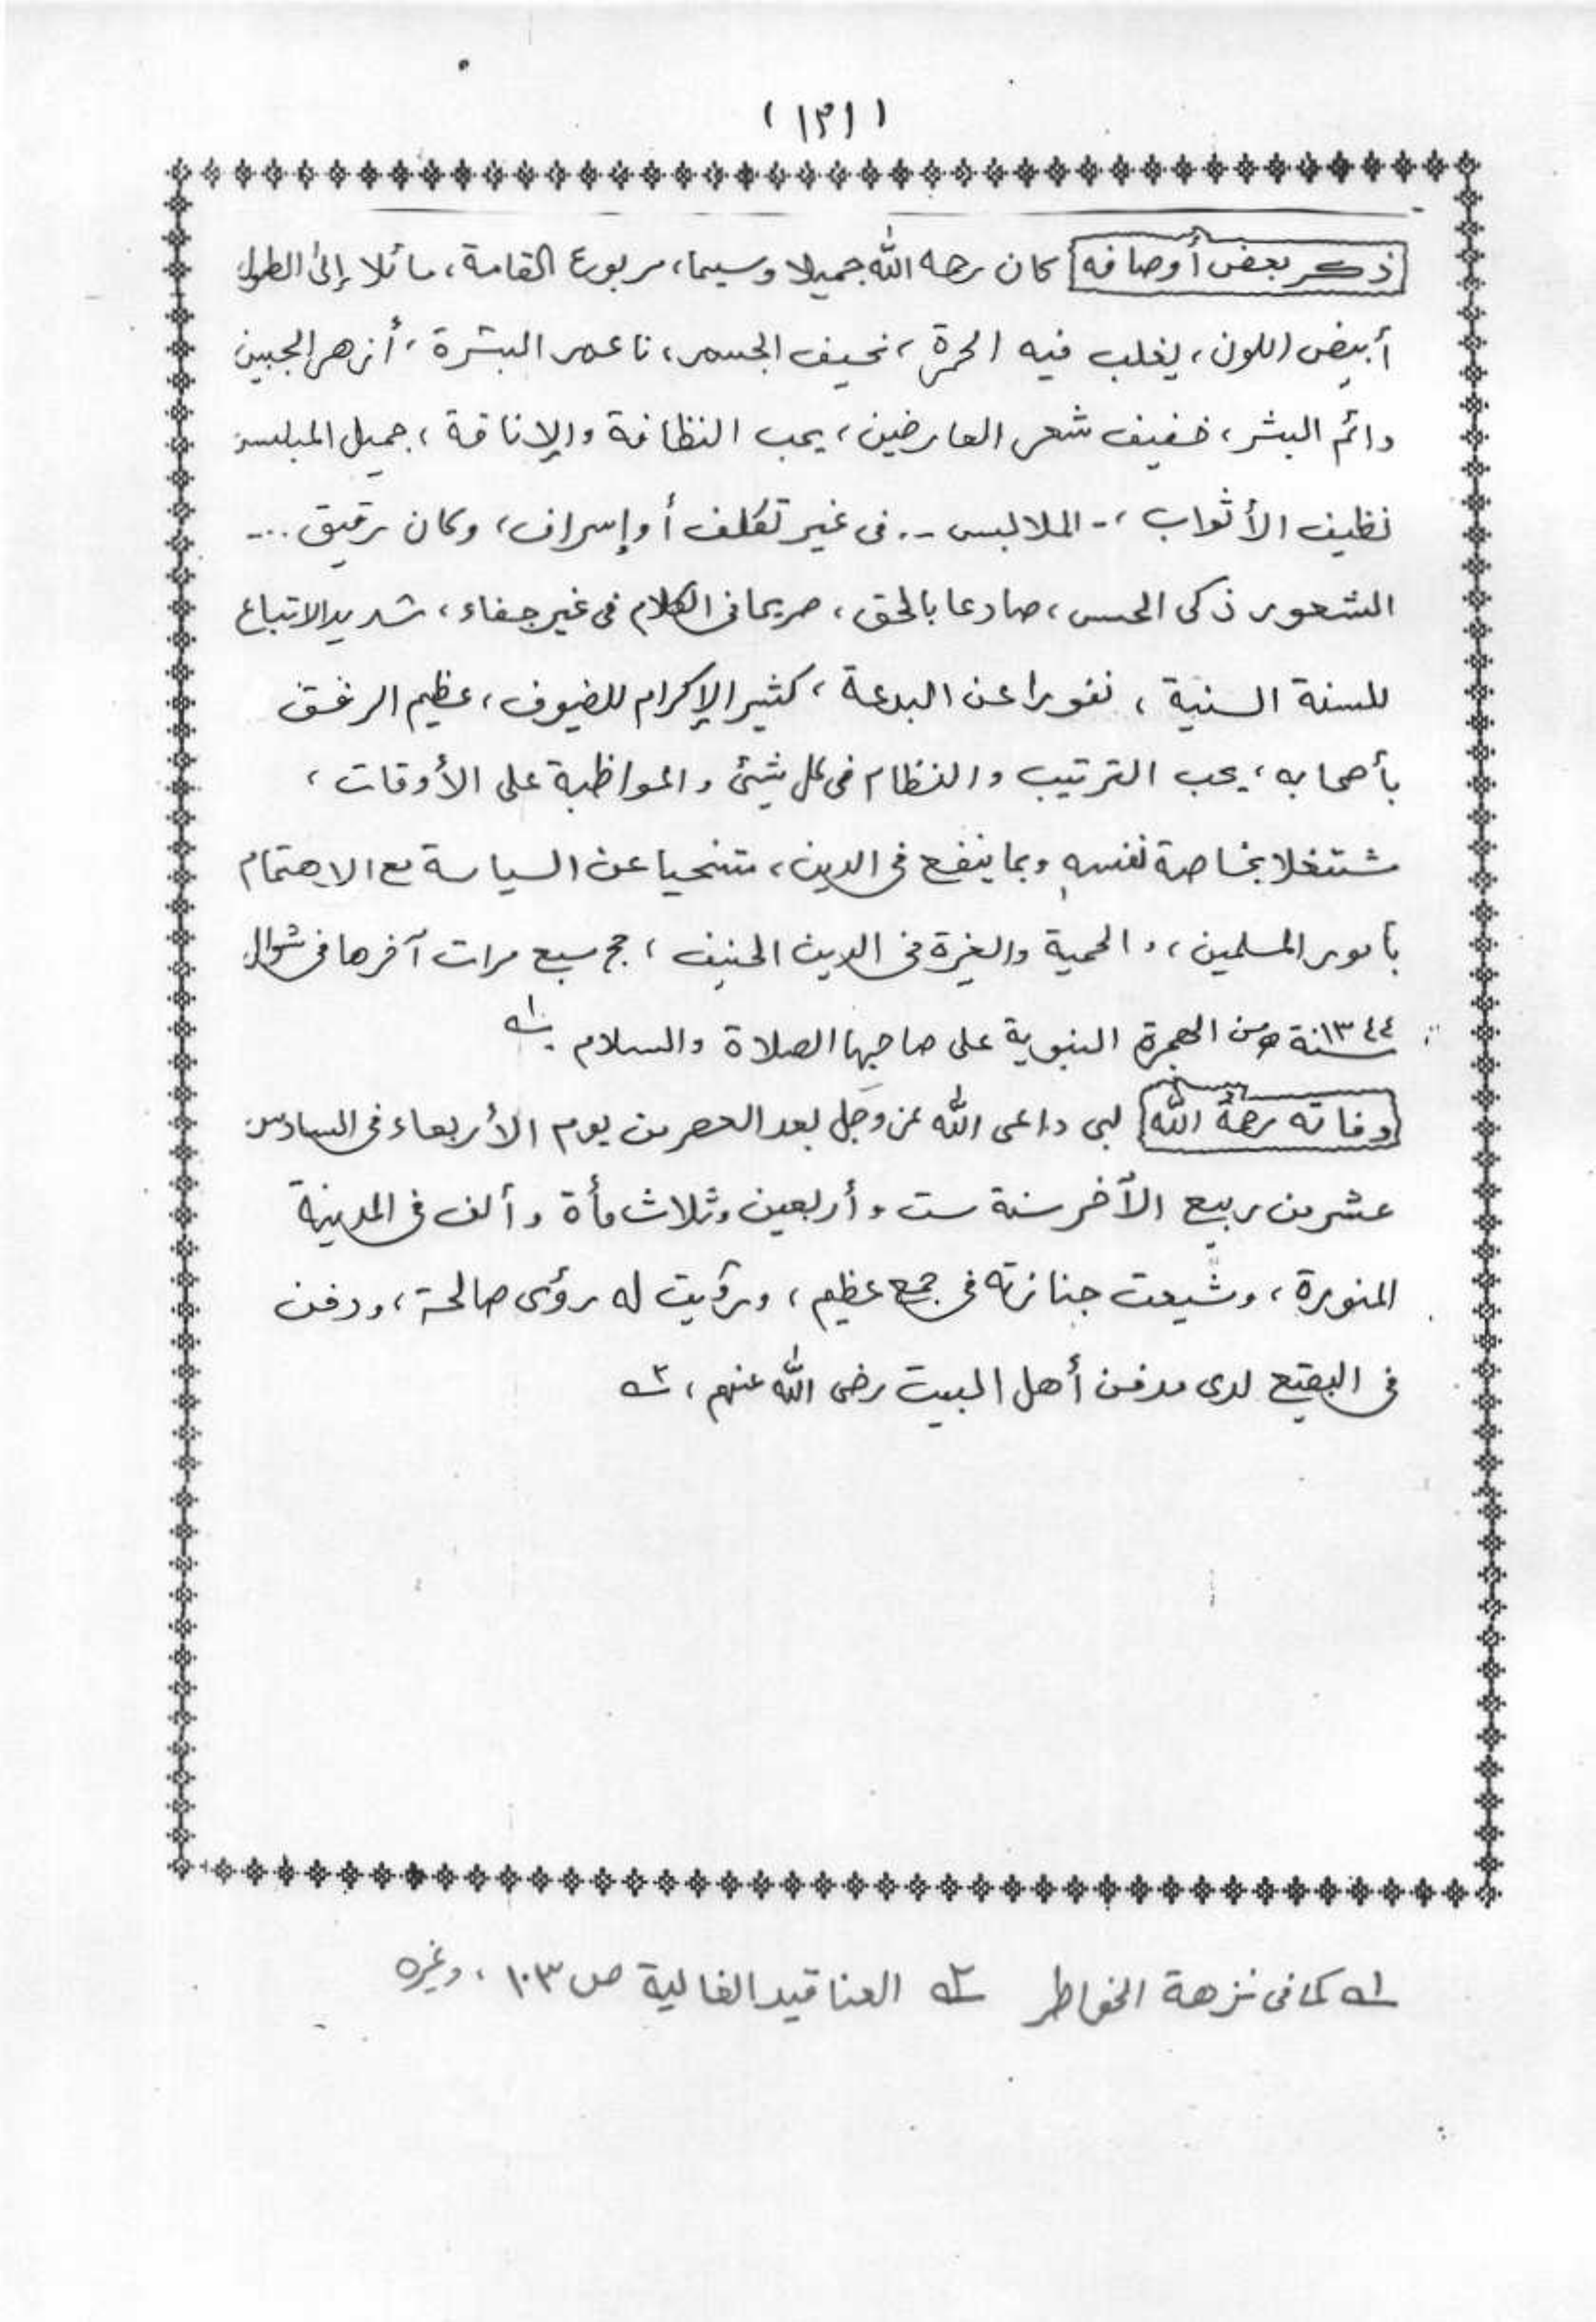 (١٣١)
ذكر بعض أوصافه كان رحمه الله جميلا وسيما، مربوع القامة، مائلا إلى الطول
أبيض اللون، يغلب فيه الحمرة، نحيف الجسم، ناعم البشرة، أزهر الجبين
دائم البشر، خفيف شعر العارضين، يحب النظافة والإناقة، جميل الملبس
نظيف الأثواب،- الملابس -.. فى غير تكلف أو إسراف، وكان رقيق ...
الشعور ذكى الحس، صادعا بالحق، صريحا فى الكلام فى غير جفاء، شديد الاتباع
للسنة السنية، نفورا عن البدعة، كثير الإكرام للضيوف، عظيم الرفق
بأصحابه، يحب الترتيب والنظام فى كل شيئ والمواظبة على الأوقات،
مشتغلا بخاصة نفسه وبما ينفع فى الدين، متنحيا عن السياسة مع الاهتمام
بأمور المسلمين،، الحمية والغيرة فى الدين الحنيف، حج سبع مرات آخرها فى شوال
١٣٤٤ سنة من الهجرة النبوية على صاحبها الصلاة والسلام ١ـه
وفاته رحمه الله لبى داعى الله عز وجل بعد العصر من يوم الأربعاء فى السادس
عشر من ربيع الآخر سنة ست وأربعين وثلاث مأة وألف فى المدينة
المنورة، وشيعت جنازته فى جمع عظيم، ورؤيت له رؤى صالحة، ودفن
فى البقيع لدى مدفن أهل البيت رضى الله عنهم، ٢ـه
١ـه كما فى نزهة الخواطر ٢ـه العناقيد الغالية ص ١٠٣، وغيره